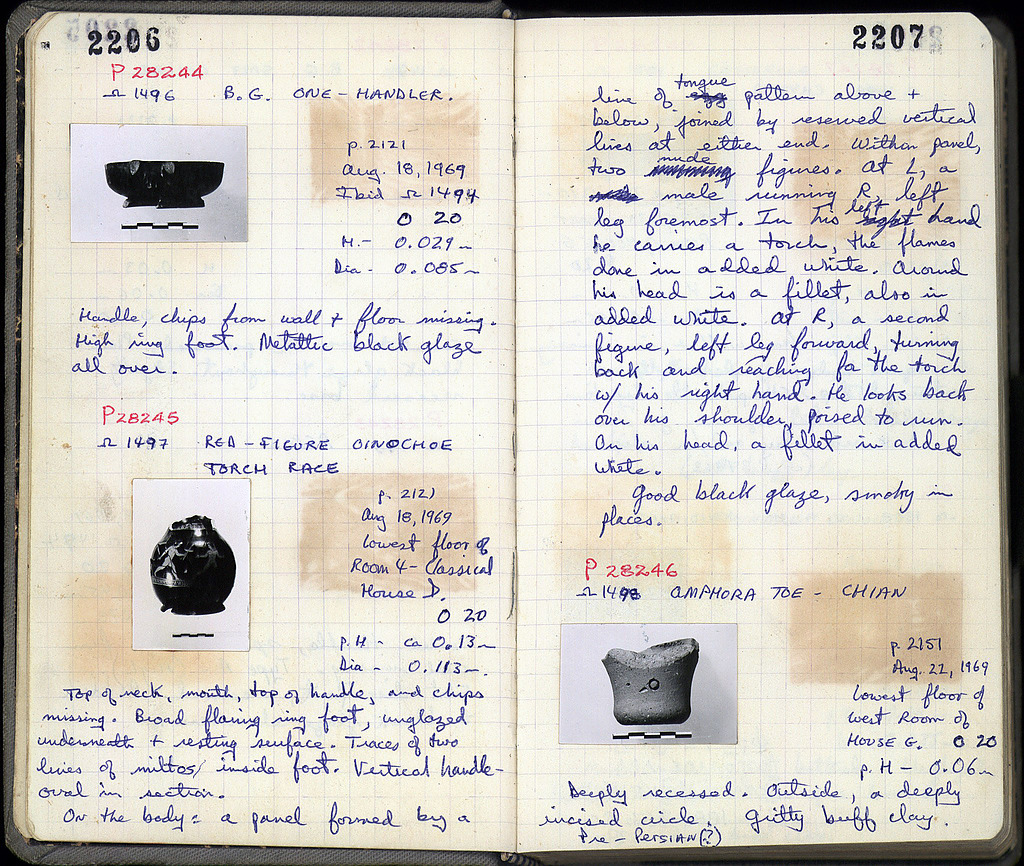 2206
P 28244
Ω 1496 B.G. ONE-HANDLER.
p. 2121
Aug. 18, 1969
Ibid Ω 1494
O 20
H. - 0.029 m
Dia - 0.085 m
Handle, chips from wall + floor missing.
High ring foot. Metallic black glaze
all over.
P 28245
Ω 1497 RED-FIGURE OINOCHOE
TORCH RACE
p. 2121
Aug 18, 1969
Lowest floor of
Room 4 - Classical
House D.
O 20
p.H - ca 0.13 m
Dia - 0.113 m.
Top of neck, mouth, top of handle, and chips
missing. Broad flaring ring foot, unglazed
underneath + resting surface. Traces of two
lines of miltos inside foot. Vertical handle-
oval in section.
On the body: a panel formed by a
2207
line of tongue pattern above +
below, joined by reserved vertical
lines at either end. Within panel,
two nude figures. At L, a
male running R, left
leg foremost. In his left hand
he carries a torch, the flames
done in added white. Around
his head is a fillet, also in
added white. At R, a second
figure, left leg forward, turning
back and reaching for the torch
w/ his right hand. He looks back
over his shoulder, poised to run.
On his head, a fillet in added
white.
Good black glaze, smoky in
places.
P 28246
Ω 1498 AMPHORA TOE - CHIAN
p. 2151
Aug. 22, 1969
Lowest floor of
West Room of
HOUSE G. O 20
p.H - 0.06 m
Deeply recessed. Outside, a deeply
incised circle. Gritty buff clay.
Pre-PERSIAN (?)